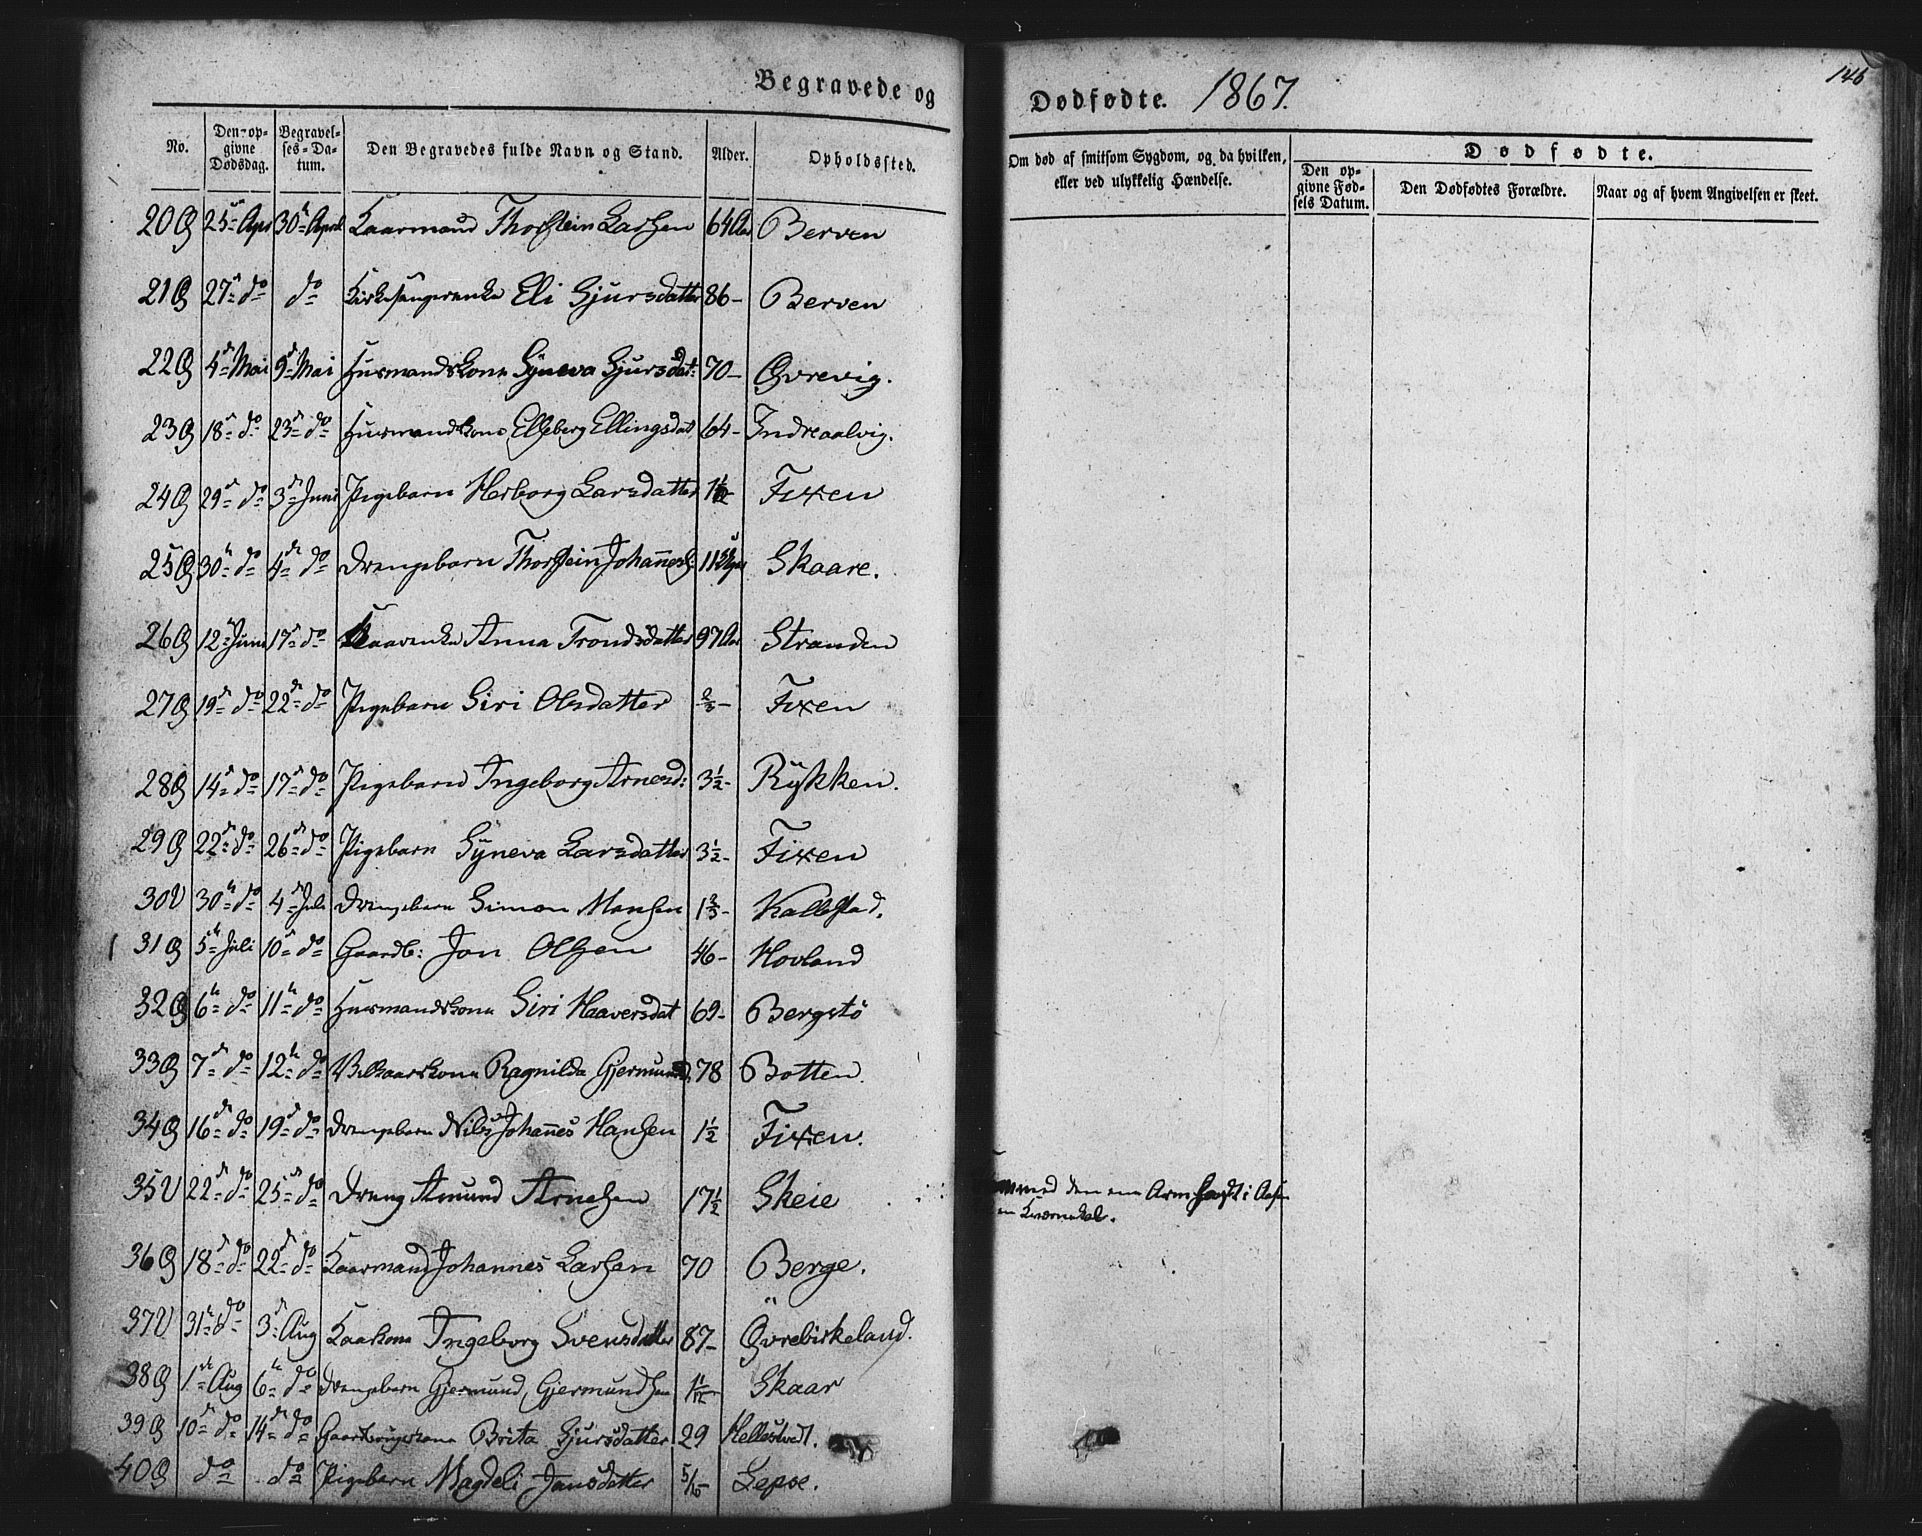 Begravede og
Dødfødte. 1867.
146
No. | Den opgivne Dødsdag. | Begravelses-Datum. | Den Begravedes fulde Navn og Stand. | Alder. | Opholdssted.
Om død af smitsom Sygdom, og da hvilken, eller ved ulykkelig Hændelse. | Dødfødte. | Den opgivne Fødsels Datum. | Den Dødfødtes Forældre. | Naar og af hvem Angivelsen er skeet.
20 Q 25de Apr 30te April Kaarmand Thorstein Larsen 64 Aar Berven
21 Q 27de do do Kirkesangerenke Eli Sjursdatter 86 - Berven
22 Q 4de Mai 9de Mai Husmandskone Syneva Sjursdat: 70 - Øvrevig.
23 Q 18de do 23de do Husmandskone Elseberg Ellingsdat 64 - Indreaalvig.
24 Q 29de do 3de Juni Pigebarn Herborg Larsdatter Fixen
25 Q 30te do 4de do Drengebarn Thorstein Johannes: 11 Skaare.
26 Q 12te Juni 17de do Kaarenke Anna Trondsdatter 97 Aar Stranden
27 Q 19de do 22de do Pigebarn Siri Olsdatter Fixen
28 Q 14de do 17de do Pigebarn Ingeborg Arnesd: 3 1/2 - Rykken.
29 Q 22de do 26de do Pigebarn Syneva Larsdatter 3 1/2 - Fixen
30 V 30te do 4de Juli Drengebarn Simon Monsen 1 2/3 - Kallestad.
31 Q 5te Juli 10de do Gaardb: Jon Olsen 46 - Hovland
32 Q 6te do 11te do Husmandskone Siri Haaversdat 69 - Bergstö
33 Q 7de do 12te do Vilkaarskone Ragnilda Gjermunds 78 Botten.
34 Q 16de do 19de do Drengebarn Nils Johannes Hansen 1 1/2 Fixen.
35 V 22de do 25de do Dreng Amund Arnesen 17 1/2 Skeie med den ene Arm fast i
en Kværnekal.
36 Q 18de do 22de do Kaarmand Johannes Larsen 70 Berge.
37 V 31te do 3de Aug Kaakone Ingeborg Svensdatter 87 - Øvrebirkeland.
38 Q 1ste Aug 6te do Drengebarn Gjermund Gjermundsen 1/12 Skaar
39 Q 10de do 14de do Gaardbrugerkone Brita Sjursdatter 29 Hellestvedt.
40 Q do do Pigebarn Magdeli Jansdatter 5/6 - Lepse.